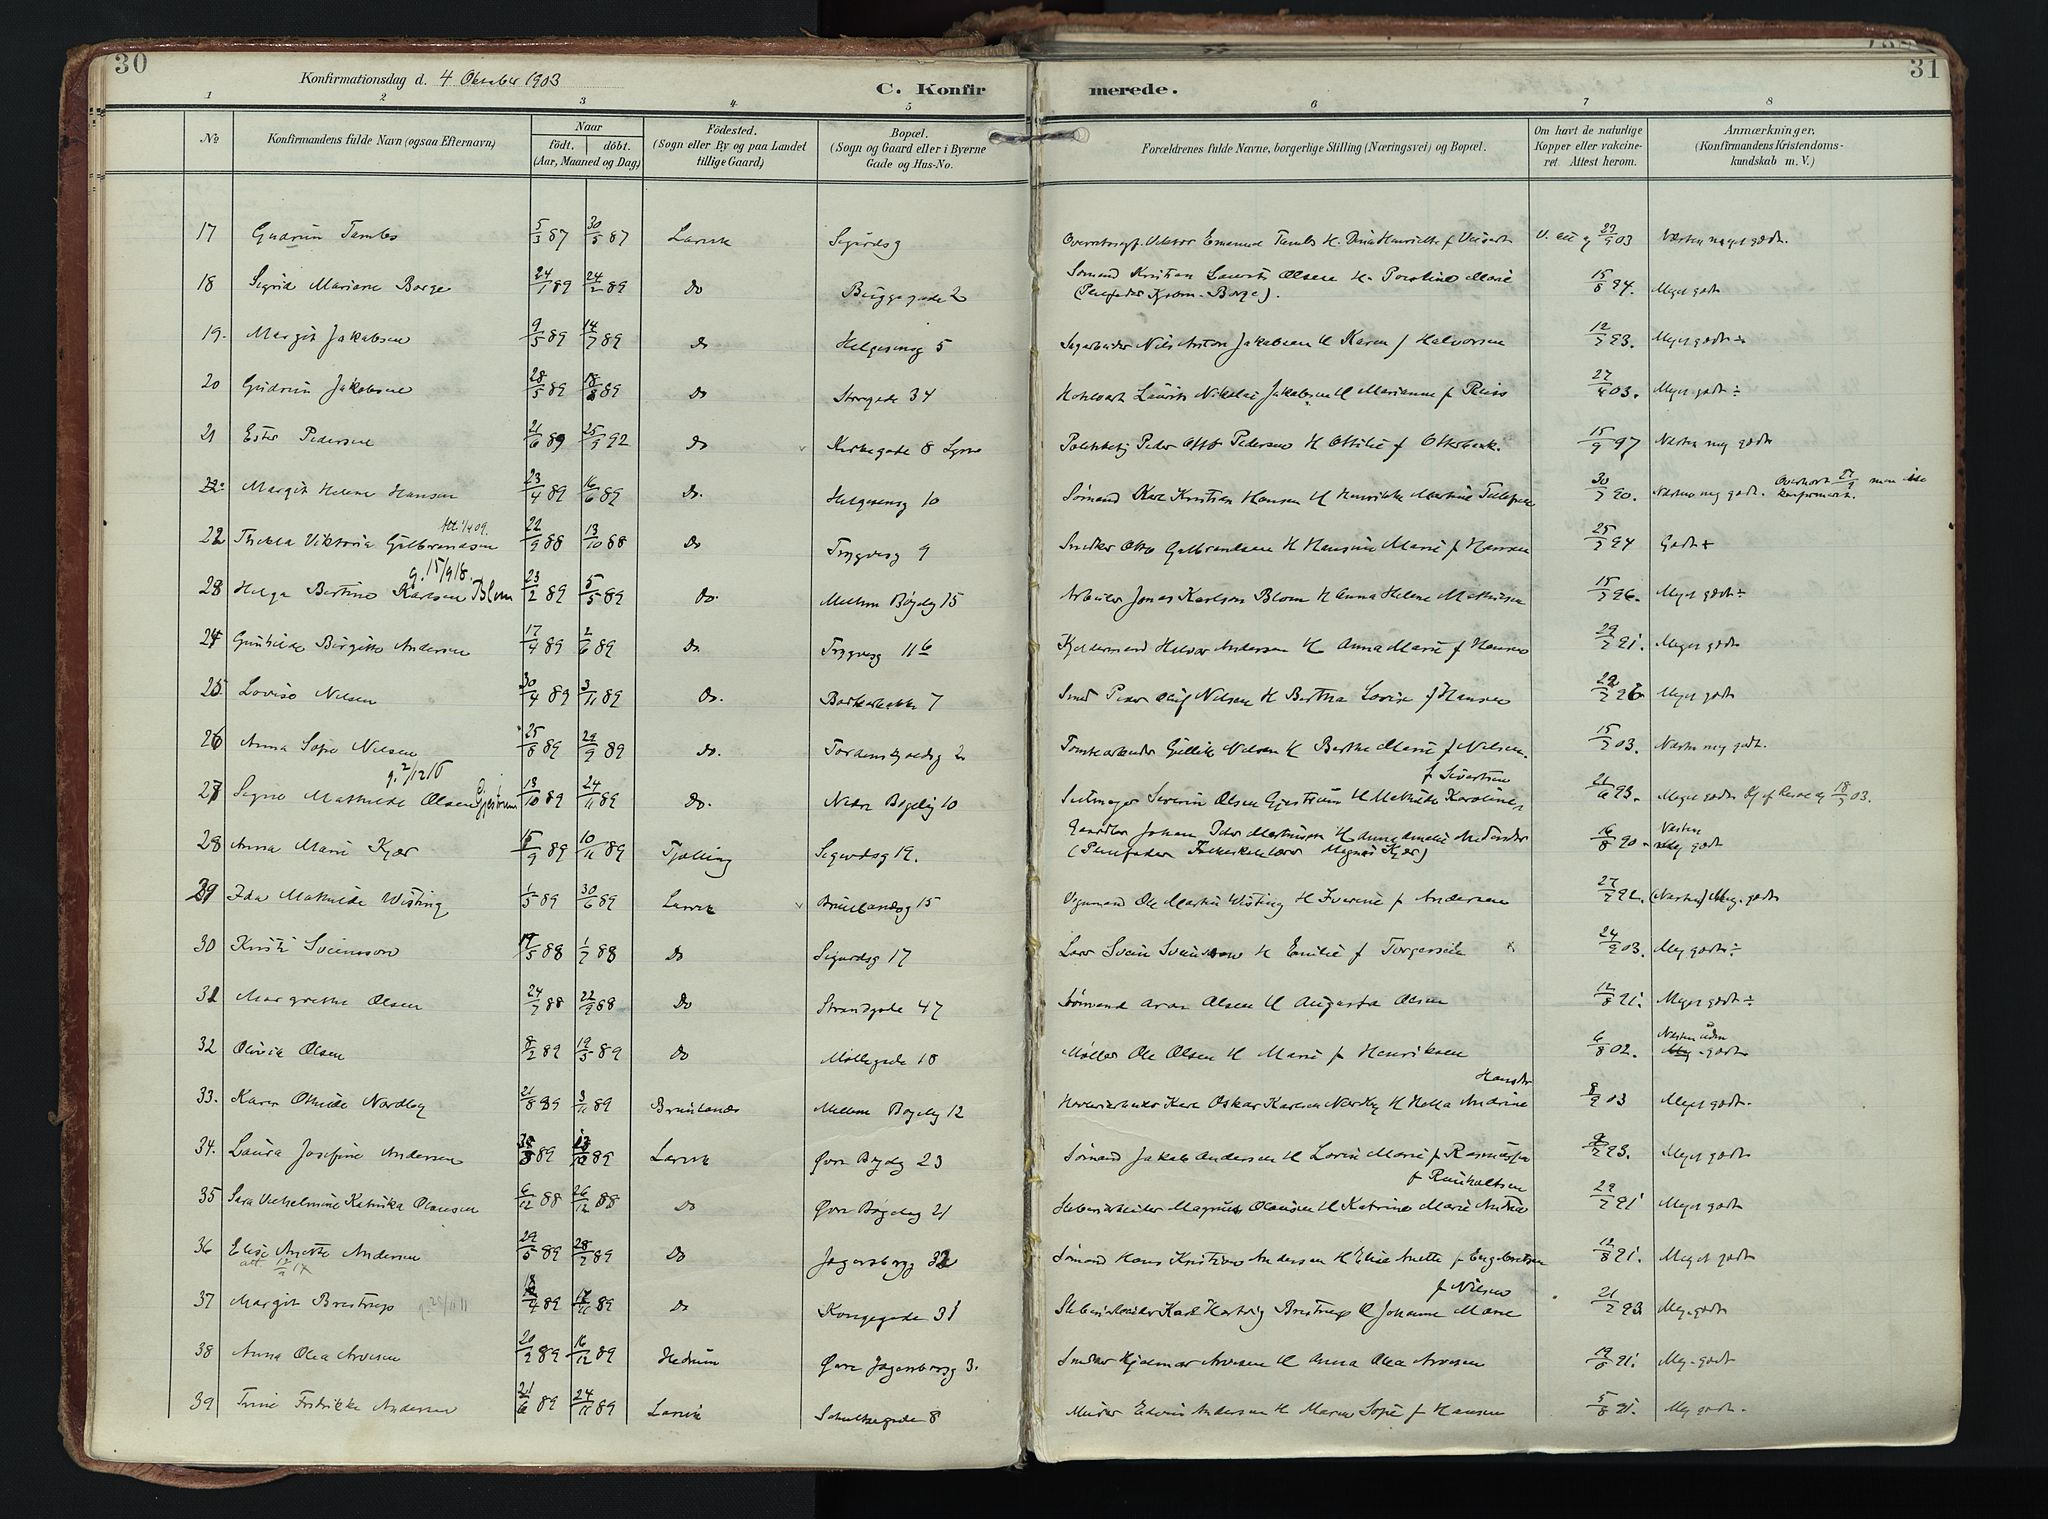 30
Konfirmationsdag d. 4 Oktober 1903
C. Konfir merede.
31
1 2 3 4 5 6 7 8
No
Konfirmandens fulde Navn (ogsaa Efternavn)
Naar
födt. döbt.
(Aar, Maaned og Dag)
Födested.
(Sogn eller By og paa Landet
tillige Gaard)
Bopæl.
(Sogn og Gaard eller i Byerne
Gade og Hus-No.
Forældrenes fulde Navne, borgerlige Stilling (Næringsvei) og Bopæl.
Om havt de naturlige
Kopper eller vakcine-
ret Attest herom.
Anmærkninger,
(Konfirmandens Kristendoms-
kundskab m. V.)
17 Gudrun Tambs 5/3 87 30/5 87 Larvik Sigurdsg Viktor Emanuel Tambs H. 27/9 03 Næsten meget godt.
18 Sigrid Mariane Borge 24/1 89 24/2 89 Do Buggegade 2 Sømand Kristian Laurits Olsen H. Marie 15/8 94. Meget godt
(Plejefader Borge).
19. Margit Jakobsen 9/5 89 14/7 89 Do Helgesensg 5 Sagarbeider Nils Anton Jakobsen H Karen f Halvorsen 12/7 93. Meget godt ÷
20 Gudrun Jakobsen 28/5 89 18/8 89 Do Storgade 34 Laurits Nikolai Jakobsen H Marianne f 27/4 03. Meget godt ÷
21 Ester Pedersen 21/6 89 25/9 92 Do Kirkegade 8 Peder Otto Pedersen H Ottilie f Otterbeck. 15/9 97 Næsten meg godt
22. Margit Helene Hansen 23/4 89 16/6 89 Do. Helgesensg 10 Sømand Karl Kristian Hansen H Henrikke Martine 30/7 90. Næsten meg godt. Overhørt 27/9 men ikke
konfirmert.
Att. 1/4 09.
22 Thekla Viktoria Gulbrandsen 22/9 88 13/10 88 Do Trygvesg 9 Snedker Otto Gulbrandsen H Hansine Marie f Hansen 25/7 94 Godt +
g. 15/9 18.
23 Helga Bertine Karlsen Blom 23/2 89 5/5 89 Do. Mellem Bøgelig 15 Arbeider Jonas Karlsen Blom H Anna Helene Mathisen 15/7 96. Meget godt ÷
24 Gunhilde Birgitte Andersen 17/4 89 2/6 89 Do Trygvesg 11 b Halvor Andersen H Anna Marie f Hansen 29/7 91. Meget godt
25 Lovise Nilsen 30/4 89 3/11 89 Do. 7 Smed Peder Oluf Nilsen H Bertha Lovise f Hansen 22/7 26 Meget godt
26 Anna Sofie Nilsen 25/8 89 29/9 89 Do. Tordenskjoldsg 2 Tomtearbeider Gullik Nilsen H Berthe Marie f Nilsen. 15/7 03. Næsten meg godt.
g. 2/12 16
f Sivertsen
27 Signe Mathilde Olsen Gjestrum 13/10 89 24/11 89 Do. Nedre Bøgelig 10 Seilmager Severin Olsen Gjestrum H Mathilde Karoline 21/6 93. Meget godt 18/7 03.
28 Anna Marie Kjær 15/9 89 10/11 89 Tjølling Sigurdsg 19. Johan Peder Martinsen H Anna Amalie 16/8 90 Næsten
meg godt
(Plejefader Folkeskolelærer Magnus Kjær)
29 Ida Mathilde Wisting 1/5 89 30/6 89 Larvik Brunlandsg 15 Vognmand Ole Martin Wisting H Iverine f Andersen 27/7 92. (Næsten) Meg. godt
30 Kristi Sveinsson 19/5 88 1/7 88 Do Sigurdsg 17 Lærer Svein Sveinsson H Emilie f Torgersen 24/9 03. Meg godt ÷
31 Margrethe Olsen 24/7 88 22/9 88 Do Strandgade 47 Sømand Olsen H Augusta Olsen 12/8 91. Meget godt ÷
32 Olivia Olsen 8/2 89 19/5 89 Do Møllegade 18 Møller Ole Olsen H Marie f Henriksen 6/8 02. Næsten uden
Meg godt
Hansdtr
33. Karen Othilde Nordby 21/8 89 3/11 89 Brunlanes Mellem Bøgelig 12 Karl Oskar Karlsen Nordby H Andrine 8/9 03 Meget godt.
34. Laura Josefine Andersen 89 89 Larvik Øvre Bøgelig 23 Sømand Jakob Andersen H Lovise Marie f Rasmussen 93. Meget godt
f Reinholtsen
35 Sara Vilhelmine Katinka Olausen 6/12 88 26/12 88 Do Øvre Bøgelig 21 Magnus Olausen H Katrine Marie 29/7 91 Meget godt
36 Elise Anette Andersen 29/5 89 28/7 89 Do Jegersborgg 32 Sømand Hans Kristian Andersen H Elise Anette f Engebretsen 12/8 91. Meget godt
att 12/9 17
f Nilsen
37 Margit Brestrup 18/4 89 17/11 89 Do Kongegade 31 Karl Hartvig Brestrup H Johanne Marie 21/7 93 Meg. godt
38 Anna Olea Arvesen 20/9 89 16/12 89 Hedrum Øvre Jegersborgg 3. Snedker Hjalmar Arvesen H Anna Olea Arvesen 19/8 91. Meg. godt
39 Trine Fredrikke Andersen 21/6 89 24/11 89 Larvik Schultzegade 8 Murer Edvin Andersen H Maren Sofie f Hansen 5/8 91. Meg godt.